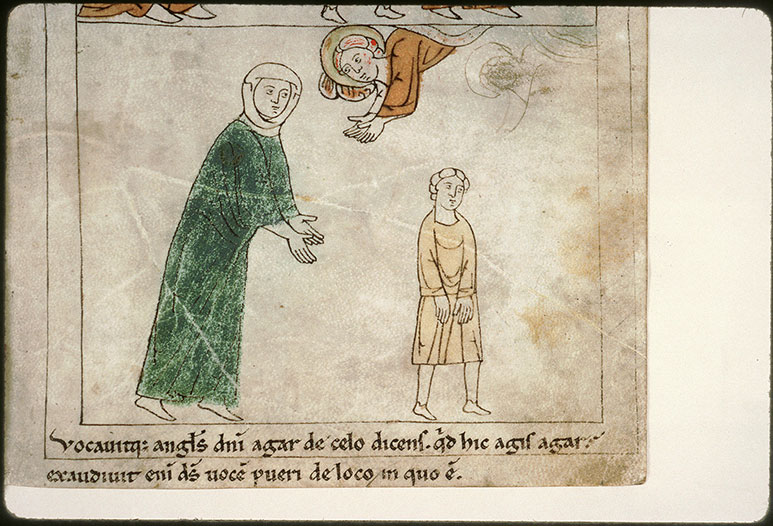 vocavitq; angl̅s dn̅i agar de celo dicens. q̅d hic agis agar.
exaudivit eni̅ d̅s voce̅ pueri de loco in quo e̅.